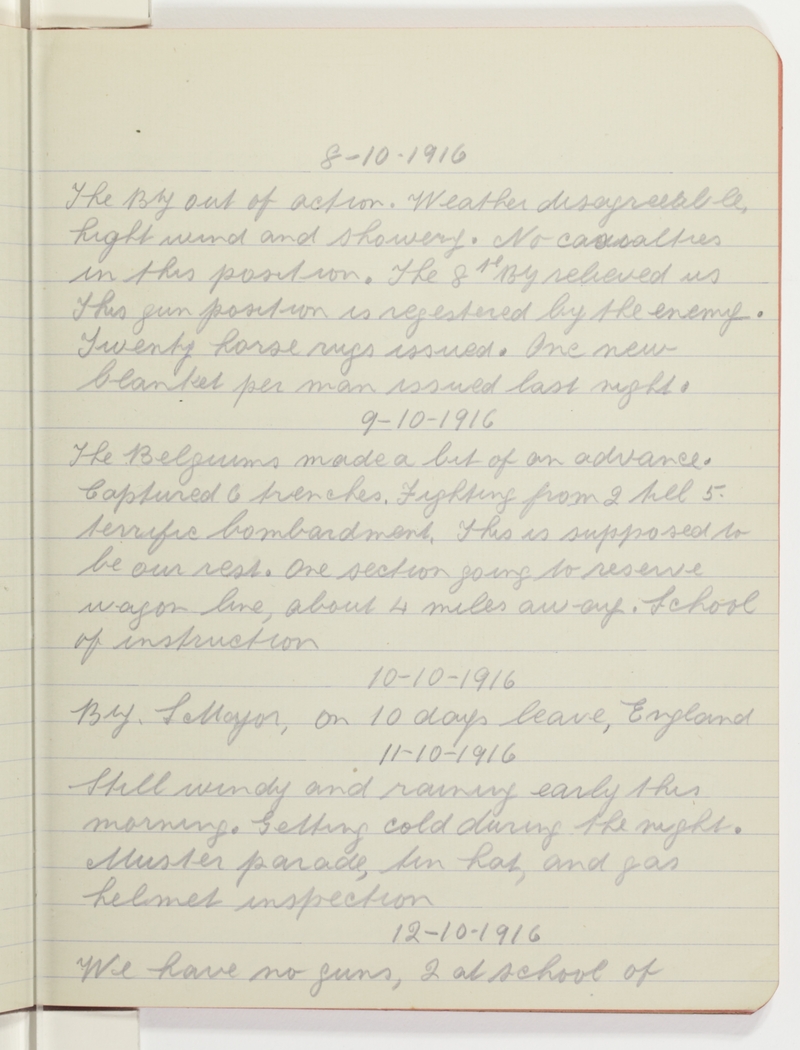 8-10-1916
The Bty out of action. Weather disagreeable,
hight wind and showery. No casualties
in this position. The 8th Bty relieved us
This gun position is regestered by the enemy.
Twenty horse rugs issued. One new
blanket per man issued last night.
9-10-1916
The Belgiums made a bit of an advance.
Captured 6 trenches. Fighting from 2 till 5.
terrific bombardment. This is supposed to
be our rest. One section going to reserve
wagon line, about 4 miles away. School
of instruction
10-10-1916
Bty. S Major, on 10 days leave, England
11-10-1916
Still windy and raining early this
morning. Getting cold during the night.
Muster parade, tin hat, and gas
helmet inspection
12-10-1916
We have no guns, 2 at school of